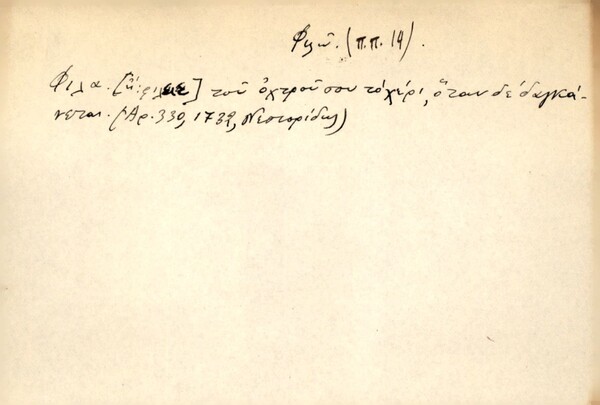 Φιλῶ. (π.π. 14).
Φίλα. [ἤ: φιλᾶς] τοῦ ὀχτροῦ σου τὸ χέρι, ὅταν δὲ δαγκά-
νεται. (Ἀρ. 330, 1732, Νεστορίδης)